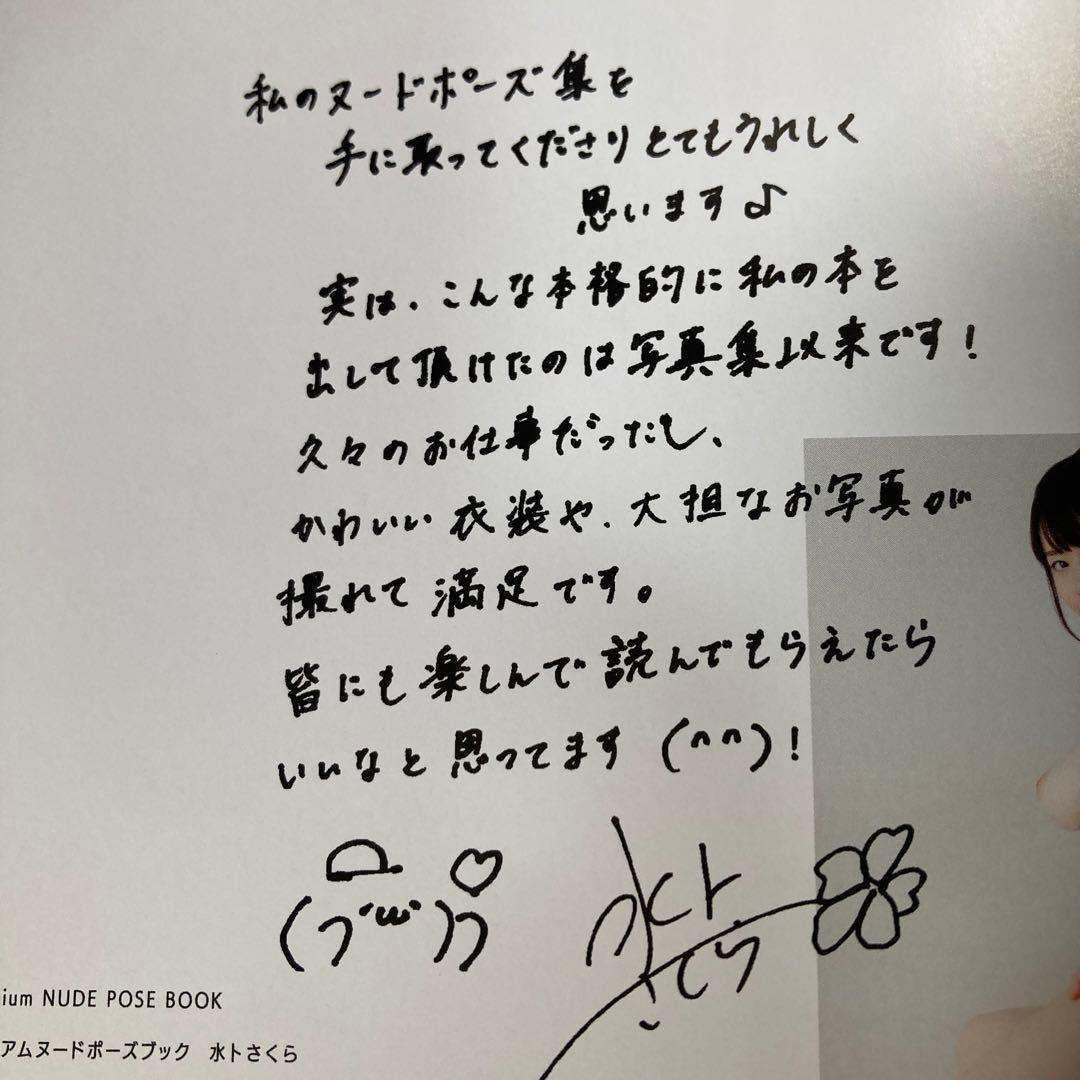 私のヌードポーズ集を
手に取ってくださりとてもうれしく
思います♪
実は、こんな本格的に私の本を
出して頂けたのは写真集以来です！
久々のお仕事だったし、
かわいい衣装や、大担なお写真が
撮れて満足です。
皆にも楽しんで読んでもらえたら
いいなと思ってます(^^)！
水トさくら
ium NUDE POSE BOOK
アムヌードポーズブック 水トさくら